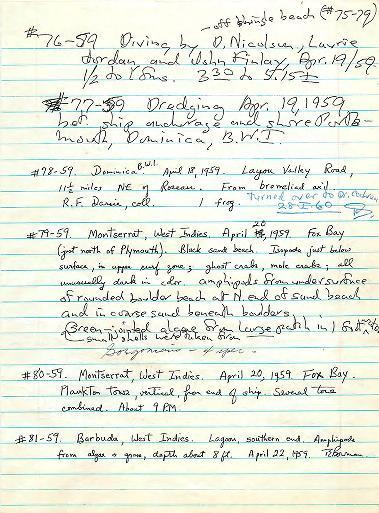 off bringe beach (#75-79)
#76-59 Diving by D. Nicolson, Laurie
Jordan and John Finlay, Apr. 19/59
1/2 to 4 fms. 3:30 to 5:15
#77-59 Dredging Apr. 19, 1959
bet. ship anchorage and shore Ports-
mouth, Dominica, B.W.I.
#78-59. Dominica B.W.I. April 18, 1959. Layou Valley Road,
11 1/2 miles NE of Roseau. From bromeliad axil
R.F. Darsie, coll. 1 frog. Turned over to Dr.
28-I-60
#79-59. Montserrat, West Indies. April 20, 1959. Fox Bay
(just north of Plymouth). Black sand beach. Isopods just below
surface, in upper surf zone; ghost crabs, mole crabs; all
unusually dark in color. Amphipods from undersurface
of rounded boulder beach at N. end of sand beach
and in coarse sand beneath boulders.
Green-jointed algae from large patch in 1 foot
small shells were taken from
#80-59. Montserrat, West Indies. April 20, 1959. Fox Bay.
Plankton tows, vertical, from end of ship. Several tows
combined. About 9 PM.
#81-59. Barbuda, West Indies. Lagoon, southern end. Amphipods
from algae + grass, depth about 8 ft. April 22, 1959. T. Bowman.